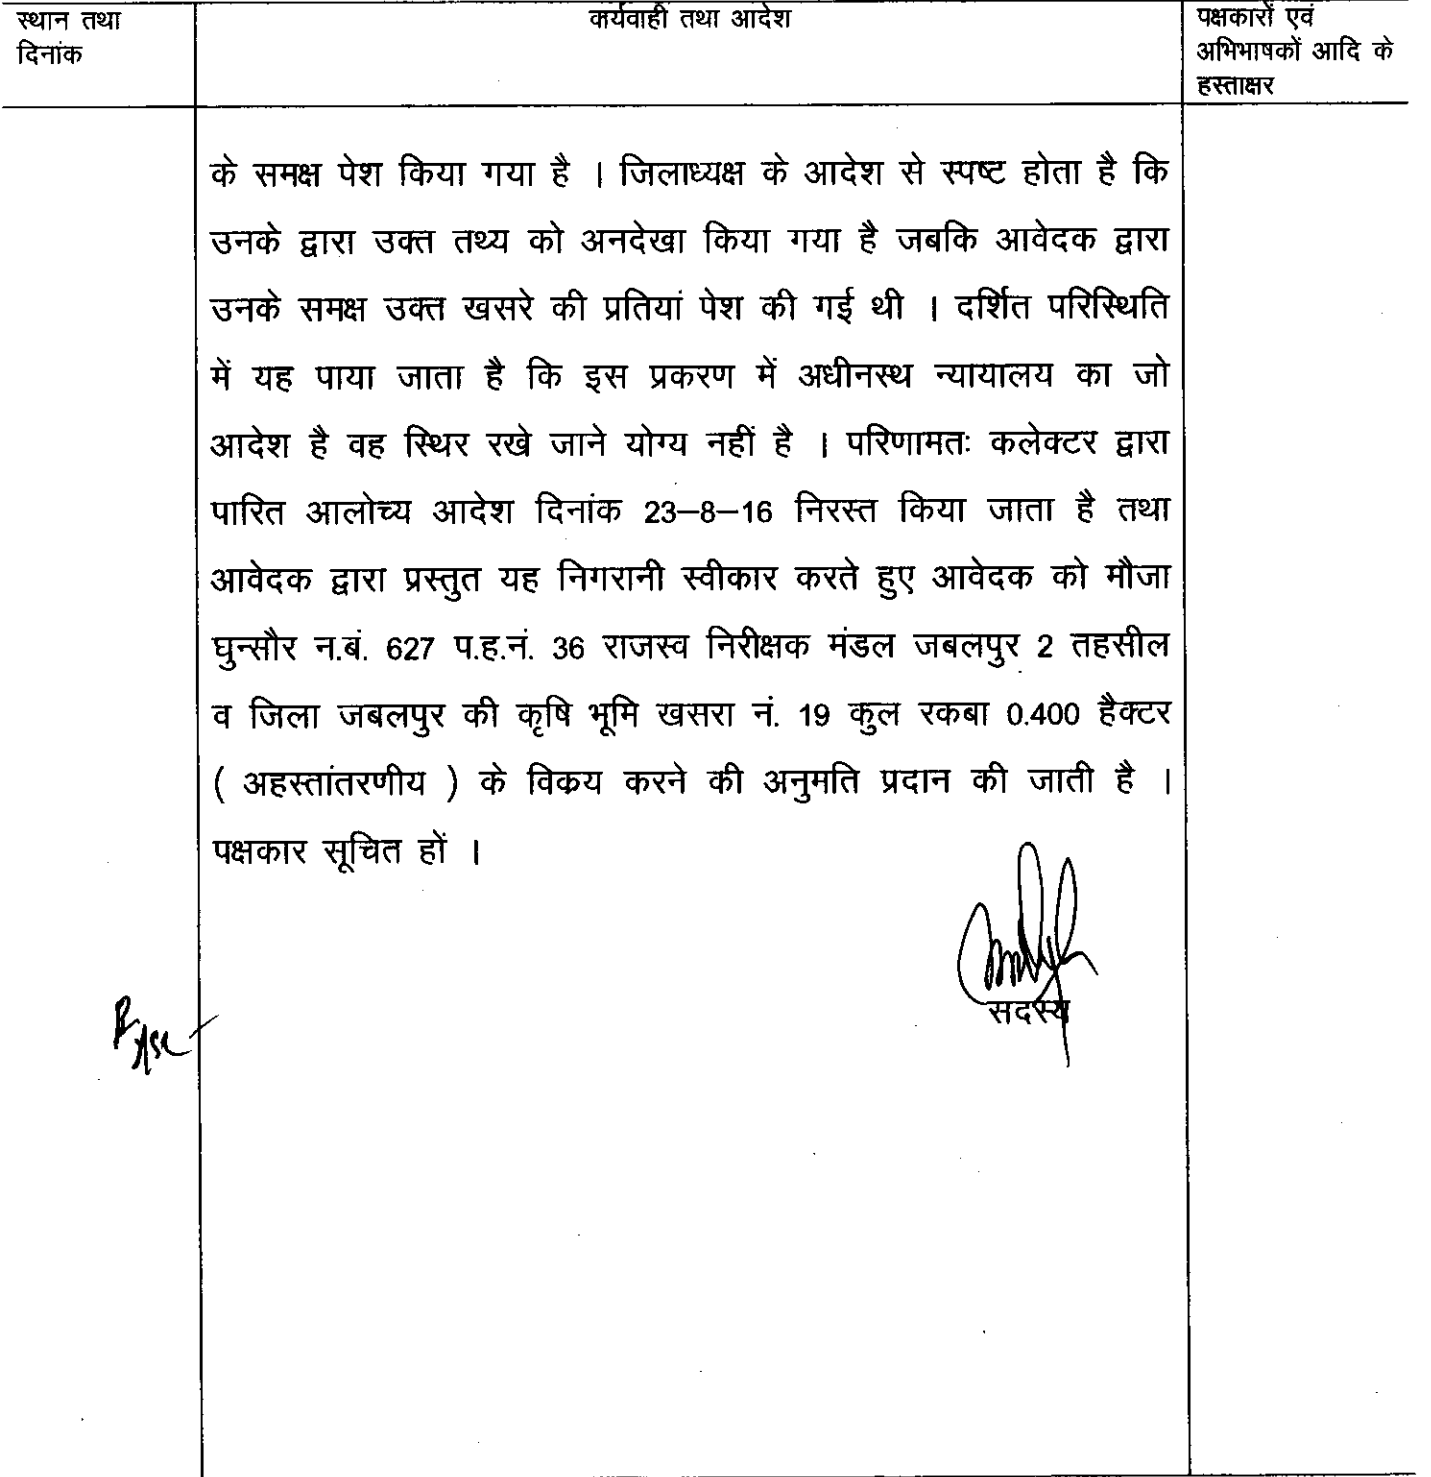 स्थान तथा
दिनांक
कार्यवाही तथा आदेश
पक्षकारों एवं
अभिभाषकों आदि के
हस्ताक्षर
के समक्ष पेश किया गया है । जिलाध्यक्ष के आदेश से स्पष्ट होता है कि
उनके द्वारा उक्त तथ्य को अनदेखा किया गया है जबकि आवेदक द्वारा
उनके समक्ष उक्त खसरे की प्रतियां पेश की गई थी । दर्शित परिस्थिति
में यह पाया जाता है कि इस प्रकरण में अधीनस्थ न्यायालय का जो
आदेश है वह स्थिर रखे जाने योग्य नहीं है । परिणामतः कलेक्टर द्वारा
पारित आलोच्य आदेश दिनांक 23–8–16 निरस्त किया जाता है तथा
आवेदक द्वारा प्रस्तुत यह निगरानी स्वीकार करते हुए आवेदक को मौजा
घुन्सौर न.बं. 627 प.ह.नं. 36 राजस्व निरीक्षक मंडल जबलपुर 2 तहसील
व जिला जबलपुर की कृषि भूमि खसरा नं. 19 कुल रकबा 0.400 हैक्टर
( अहस्तांतरणीय ) के विकय करने की अनुमति प्रदान की जाती है ।
पक्षकार सूचित हों ।
सदस्य